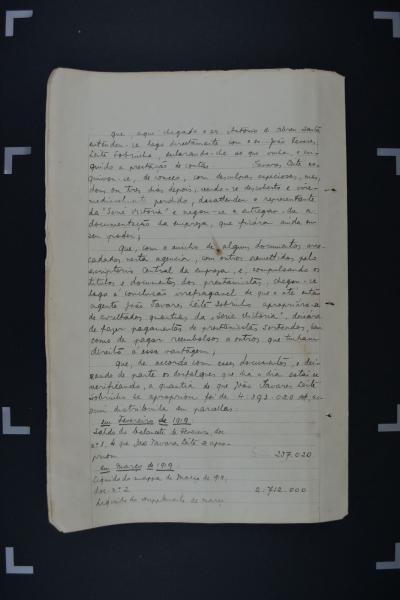 que, aqui chegado o sr. António
entendeu-se logo directamente com o sr. João Tavares
Leite Sobrinho, declarando-lhe ao que vinha, e exi-
gindo a prestação de contas. Tavares Leite es-
quivou-se, de começo, com desculpas especiosas, mas,
dois ou tres dias depois, vendo-se descoberto e irre-
mediavelmente perdido, desattendeu o representante
da "Serie Victoria" e negou-se a entregar-lhe a
documentação da empreza, que ficára ainda em
seu poder;
que, com o auxilio de alguns documentos arre-
cadados nesta agencia, com outros remettidos pelo
escriptorio Central da empreza, e, compulsando os
titulos e documentos dos prestamistas, chegou-se
logo á conclusão irrefragavel de que o até então
agente João Tavares Leite Sobrinho apropriára-se
de avultadas quantias da "Serie Victoria", deixára
de fazer pagamentos de prestamistas sorteados, bem
como de pagar reembolsos a outros que tinham
direito a essa vantagem;
que, de accordo com esses documentos, e dei-
xando de parte os desfalques que dia a dia estão se
verificando, a quantia de que João Tavares Leite
Sobrinho se apropriou foi de 4.892.020 as-
sim distribuida em parcellas:
em Fevereiro de 1919
Saldo do balancete de Fevereiro, doc.
nº 1, de que João Tavares Leite se apro-
priou 237.020
em Março de 1919
Liquido do mappa de Março de 919,
doc. nº 2 2:712.000
Liquido do supplemento de março